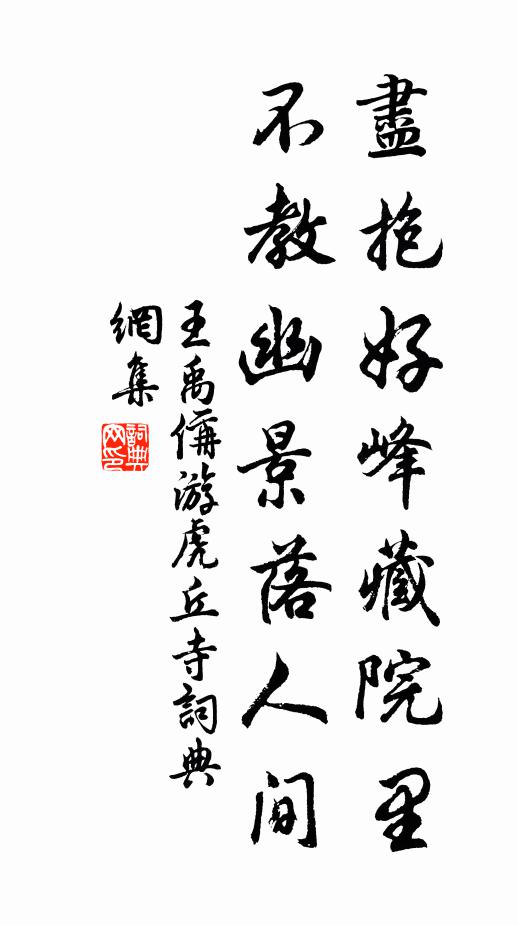 盡抱好峰藏院里
不教幽景落人間
王禹偁游虎丘寺詞典
網集
詞典
网印